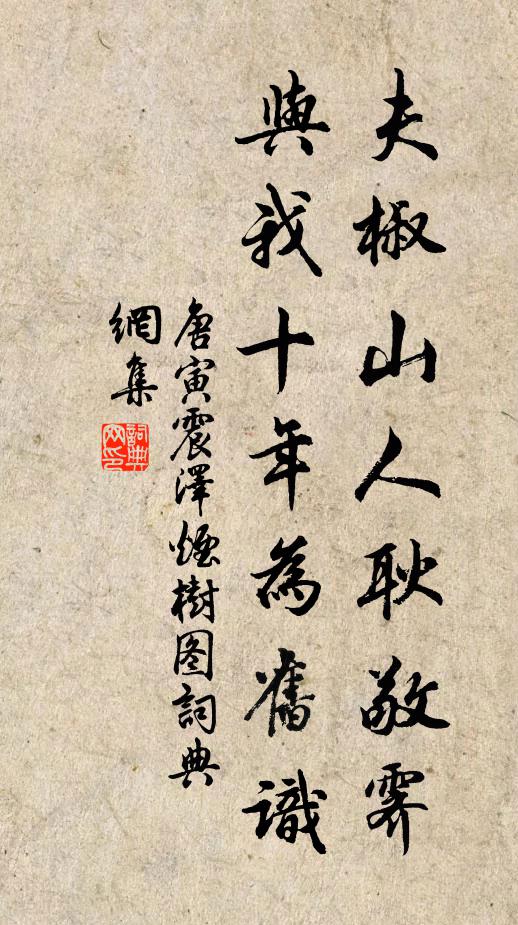 夫椒山人耿敬霁
與我十年為舊識
唐寅震澤煙樹图詞典
網集
詞典
网印